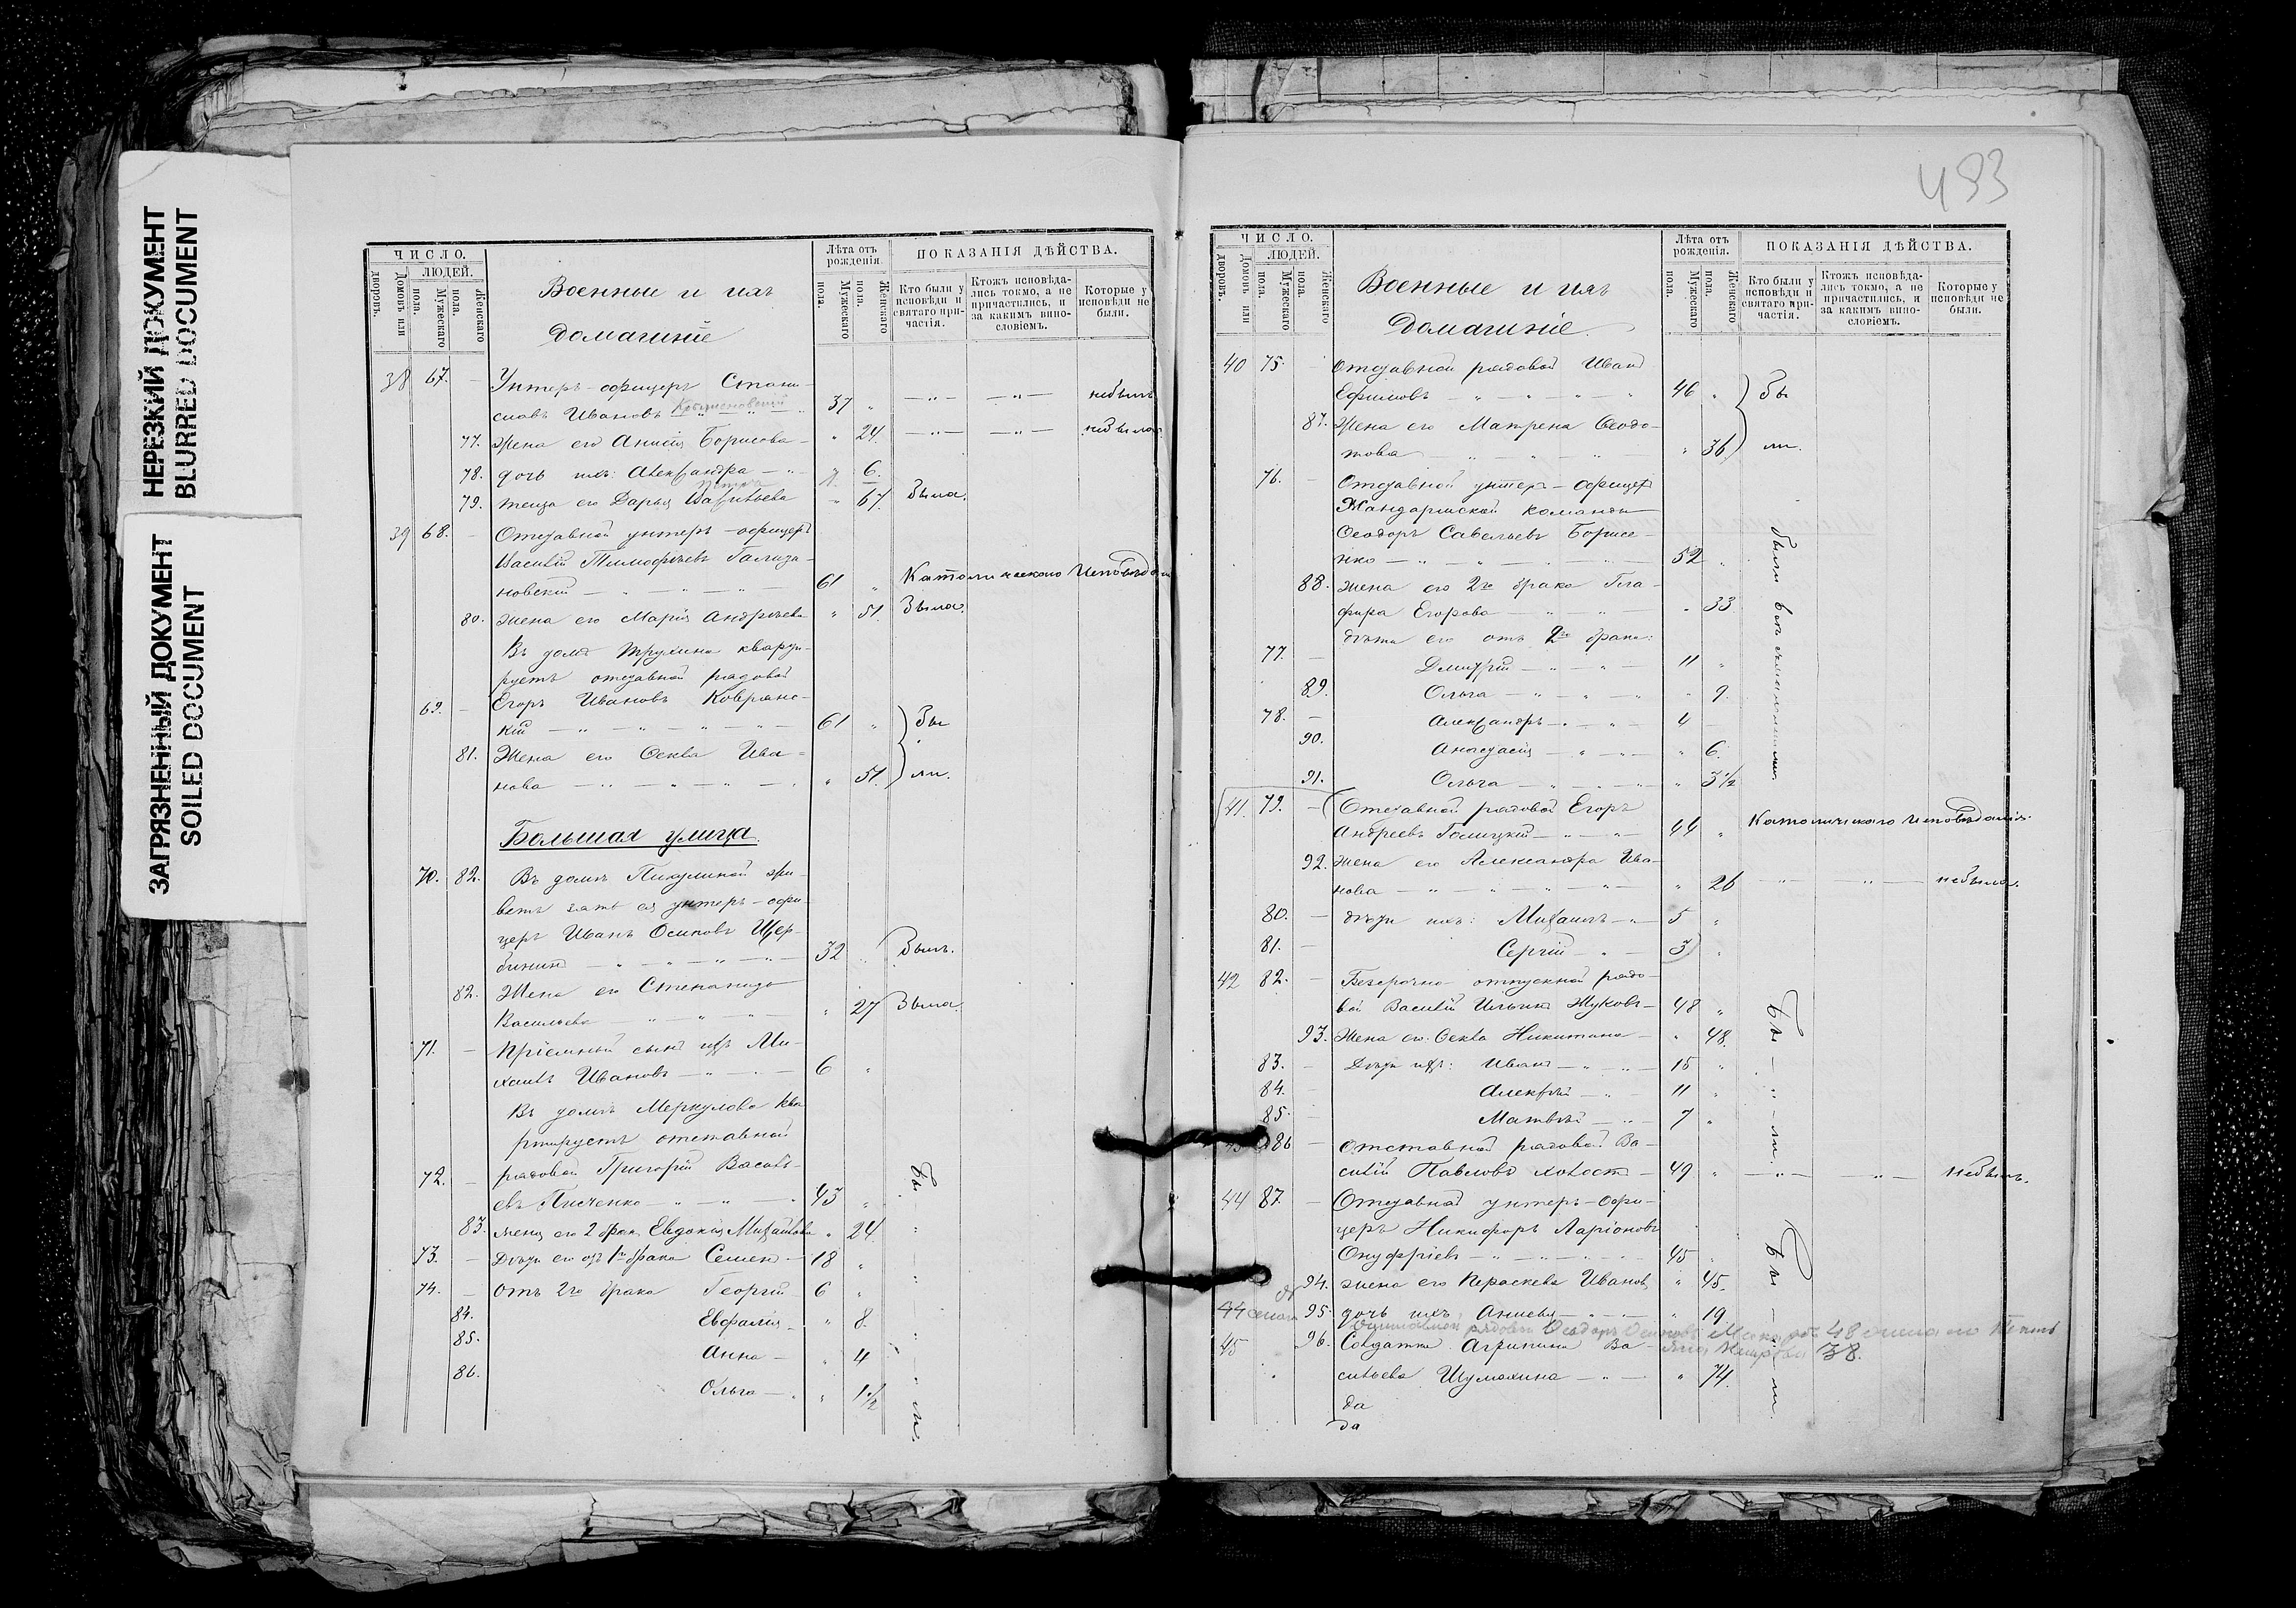 НЕРЕЗКИЙ ДОКУМЕНТ
BLURRED DOCUMENT
ЗАГРЯЗНЕННЫЙ ДОКУМЕНТ
SOILED DOCUMENT
ЧИСЛО.
Домовъ или дворовъ.
ЛЮДЕЙ.
Мужескаго пола.
Женскаго пола.
Военные и ихъ
домашніе
Лѣта отъ рожденія.
Мужескаго пола.
Женскаго пола.
ПОКАЗАНІЯ ДѢЙСТВА.
Кто были у исповѣди и святаго причастія.
Ктожъ исповѣдались токмо, а не причастились, и за какимъ винословіемъ.
Которые у исповѣди не были.
38 67. — Унтеръ-офицеръ Стани-
славъ Ивановъ 37 " — " — — " — небылъ
77. Жена его Анисія Борисова — " 24. — " — — " — небыла.
78. дочь ихъ: Александра — " 6.
79. теща его Дарья Васильева " 67. Была.
39 68. — Отставной унтеръ-офицеръ
Василій Тимофѣевъ
новскій — " — " — 61 " Католическаго Исповѣдан
80. жена его Марія Андрѣева " 51. Была.
Въ домѣ Трухина кварти-
руетъ отставной рядовой
69. — Егоръ Ивановъ Ковранс-
кій — " — " — 61 " Бы
81. Жена его Ѳекла Ива-
нова — " — " — " 51. ли.
Большая улица.
70. 82. Въ домѣ Пикулиной жи-
ветъ зять ея унтеръ-офи-
церъ Иванъ Осиповъ Щер-
бининъ — " — " — 32 " Былъ.
82. Жена его Степанида
Васильева — " — " — " 27 Была.
71. — Пріемный сынъ ихъ Ми-
хаилъ Ивановъ — " — 6 "
Въ домѣ Меркулова ква
ртируетъ отставной
72. — рядовой Григорій Василь-
евъ — " — " — 43 " Бы
83. жена его 2 брак. Евдокія Михайлова " 24.
73. — Дѣти его отъ 1го брака Семенъ — 18 "
74. — отъ 2го брака Георгій — 6 "
84. Евфалія — " 8.
85. Анна — " 4
86. Ольга — " 1 1/2 ли.
483
ЧИСЛО.
Домовъ или дворовъ.
ЛЮДЕЙ.
Мужескаго пола.
Женскаго пола.
Военные и ихъ
домашніе.
Лѣта отъ рожденія.
Мужескаго пола.
Женскаго пола.
ПОКАЗАНІЯ ДѢЙСТВА.
Кто были у исповѣди и святаго причастія.
Ктожъ исповѣдались токмо, а не причастились, и за какимъ винословіемъ.
Которые у исповѣди не были.
40 75. Отставной рядовой Иванъ
Ефимовъ — " — " — " 46 " Бы
87. Жена его Матрена Ѳеодо-
това — " — " — " 36 ли.
76. — Отставной унтеръ-офицеръ
Жандармской команды
Ѳеодоръ Савельевъ Борисе-
нко — " — " — 52 "
88. жена его 2го брака Гла-
фира Егорова — " — " 33
дѣти его отъ 2го брака:
77. — Дмитрій — " — " — 11 "
89. Ольга — " — " — " 9.
78. — Александръ — " — 4
90. Анастасія — " — " 6.
91. Ольга — " — " — " 3 1/2
41. 79. — Отставной рядовой Егоръ
Андреевъ Голицкій — " — 44 " Католическаго исповѣданія.
92. жена его Александра Ива-
нова — " — " — " 26 — " — — " — небыла.
80. — дѣти ихъ: Михаилъ — " 5 "
81. — Сергій — " — 3 "
42 82. — Безсрочно-отпускной рядо-
вой Василій Ильинъ Жуковъ — 48 " Бы
93. Жена его Ѳекла Никитина — " 48.
83. — Дѣти ихъ: Иванъ — " — 15 "
84. Алексѣй — " — 11 "
85. — Матвѣй — " — 7 " ли.
43 86 — Отставной рядовой Ва-
силій Павловъ холостъ — 49 " — " — — " — небылъ.
44 87. — Отставной унтеръ-офи-
церъ Никифоръ Ларіоновъ
Онуфріевъ — " — " — 45 " Бы
94. жена его Параскева Иванов. " 45.
95. дочь ихъ — " — " 19
45 96. Солдатка Агрипина Ва-
38.
сильева Шумахина — " — " 74. ли.
да
да